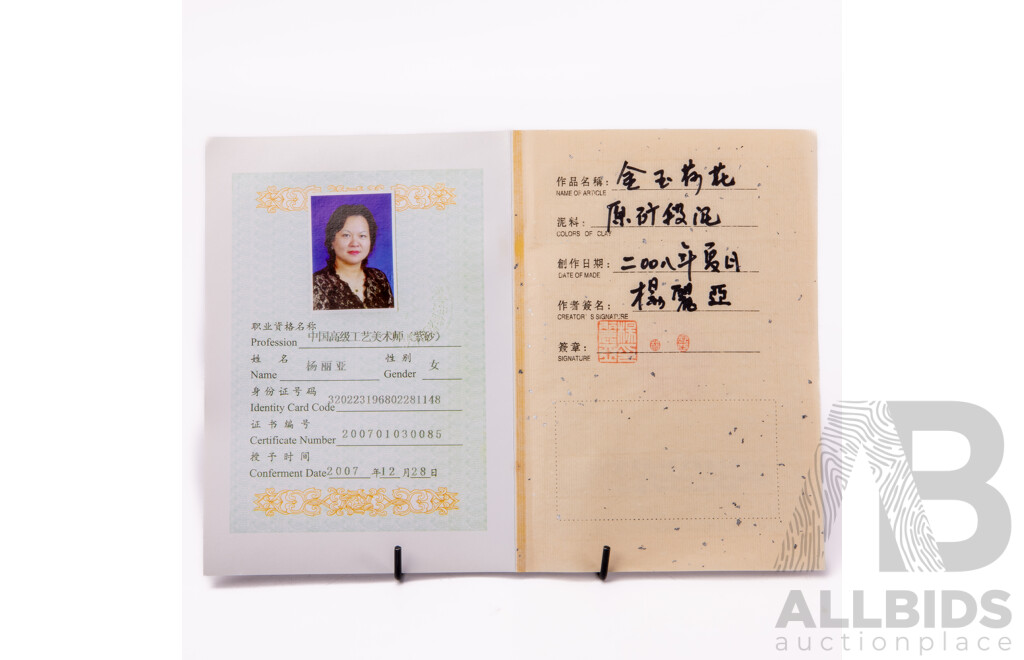 职业资格名称
Profession 中国高级工艺美术师《紫砂》
姓 名 性 别
Name 杨丽亚 Gender 女
身份证号码
Identity Card Code 320223196802281148
证书编号
Certificate Number 200701030085
授予时间
Conferment Date 2007 年12月28日
作品名稱: 金玉荷花
NAME OF ARTICLE
泥料: 原矿段泥
COLORS OF CLAY
創作日期: 二00八年夏日
DATE OF MADE
作者簽名: 楊麗亞
CREATOR'S SIGNATURE
簽章:
SIGNATURE
AB
ALLBIDS
auctionplace